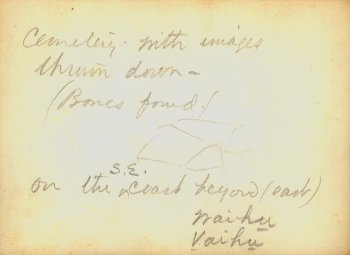 Cemetery with images
thrown down –
(Bones found)
on the S.E. coast beyond (east)
Waihu
Vaihu